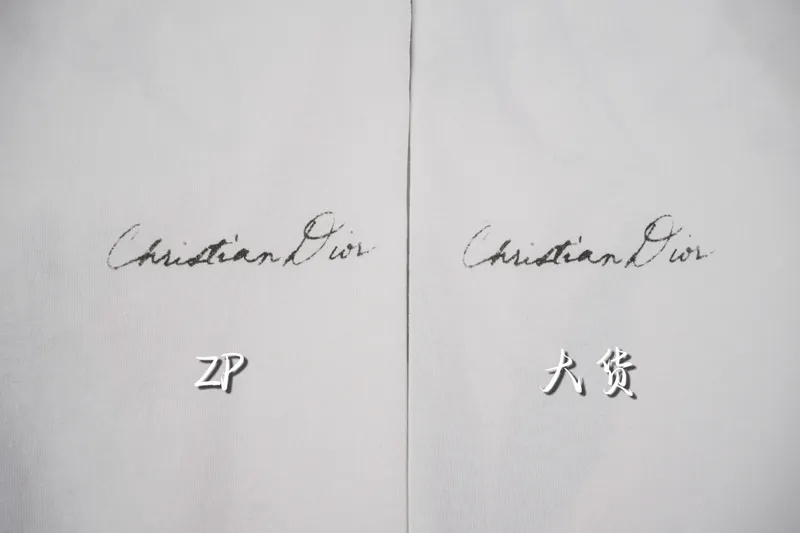 Christian Dior
Christian Dior
ZP
大货